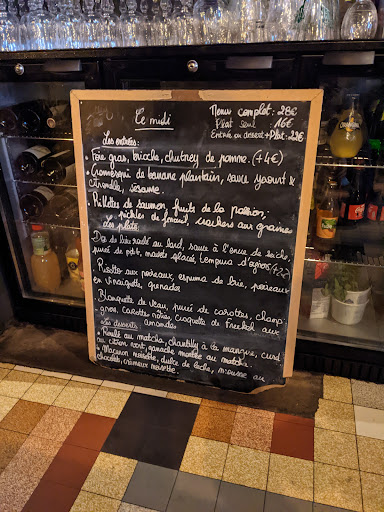 Le midi
Menu complet: 28€
Plat seul 16€
Entrée ou dessert + Plat: 22€
Les entrées:
• Foie gras, brioche, chutney de pomme. (+4€)
• Cromesquis de banane plantain, sauce yaourt &
citronelle, sésame.
• Rillettes de saumon, fruits de la passion,
pickles de fenouil, crackers aux graines
Les plats:
• Dos de lieu rôti au lard, sauce à l'encre de seiche,
purée de petit, maïs glacé, tempura d'oignons (+2€)
• Risotto aux poireaux, espuma de brie, poireaux
en vinaigrette, granola
• Blanquette de veau, purée de carottes, champi-
gnons, carottes rôties, croquette de Freekeh aux
Les desserts: amandes
• Roulé au matcha, chantilly à la mangue, curd
au citron vert, ganache montée au matcha.
• Macaron noisette, dulce de leche, mousse au
chocolat, crémeux noisette.